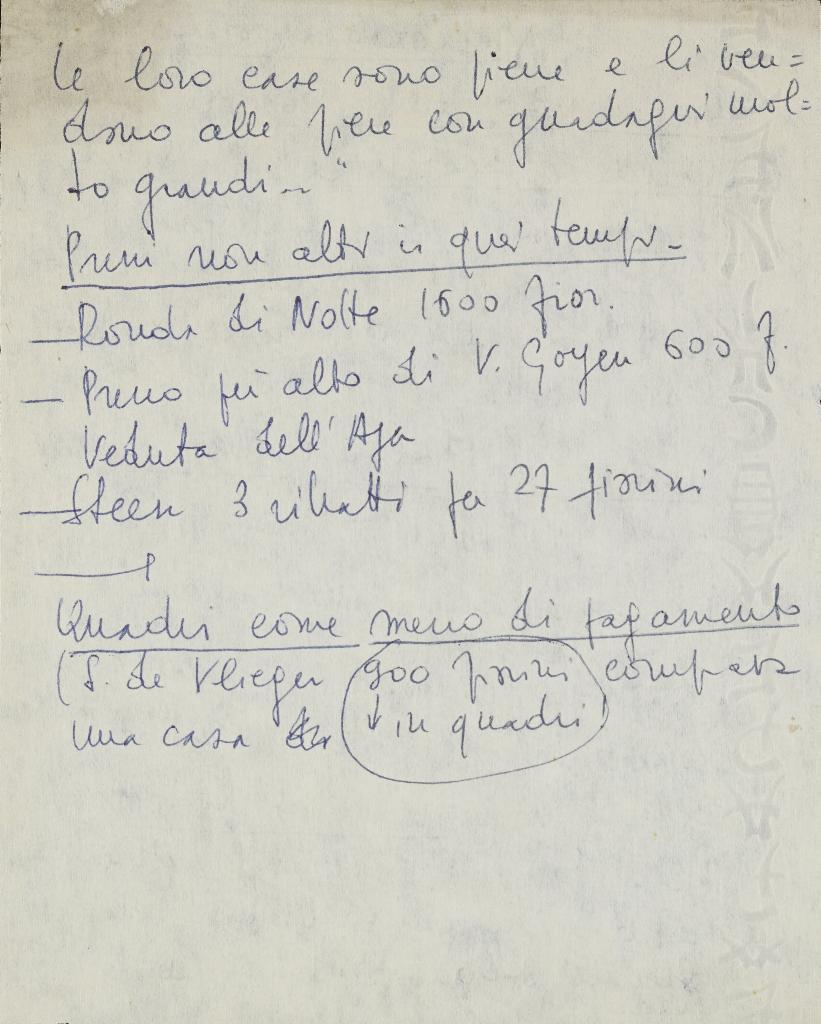 le loro case sono piene e li ven=
dono alle fiere con guadagni mol=
to grandi.. "
Prezzi non alti in quei tempi -
— Ronda di Notte 1600 fior.
— Prezzo più alto di V. Goyen 600 f.
Veduta dell'Aja
— Steen 3 ritratti per 27 fiorini
Quadri come mezzo di pagamento
(S. de Vlieger 900 fiorini compara
una casa ↓ in quadri)